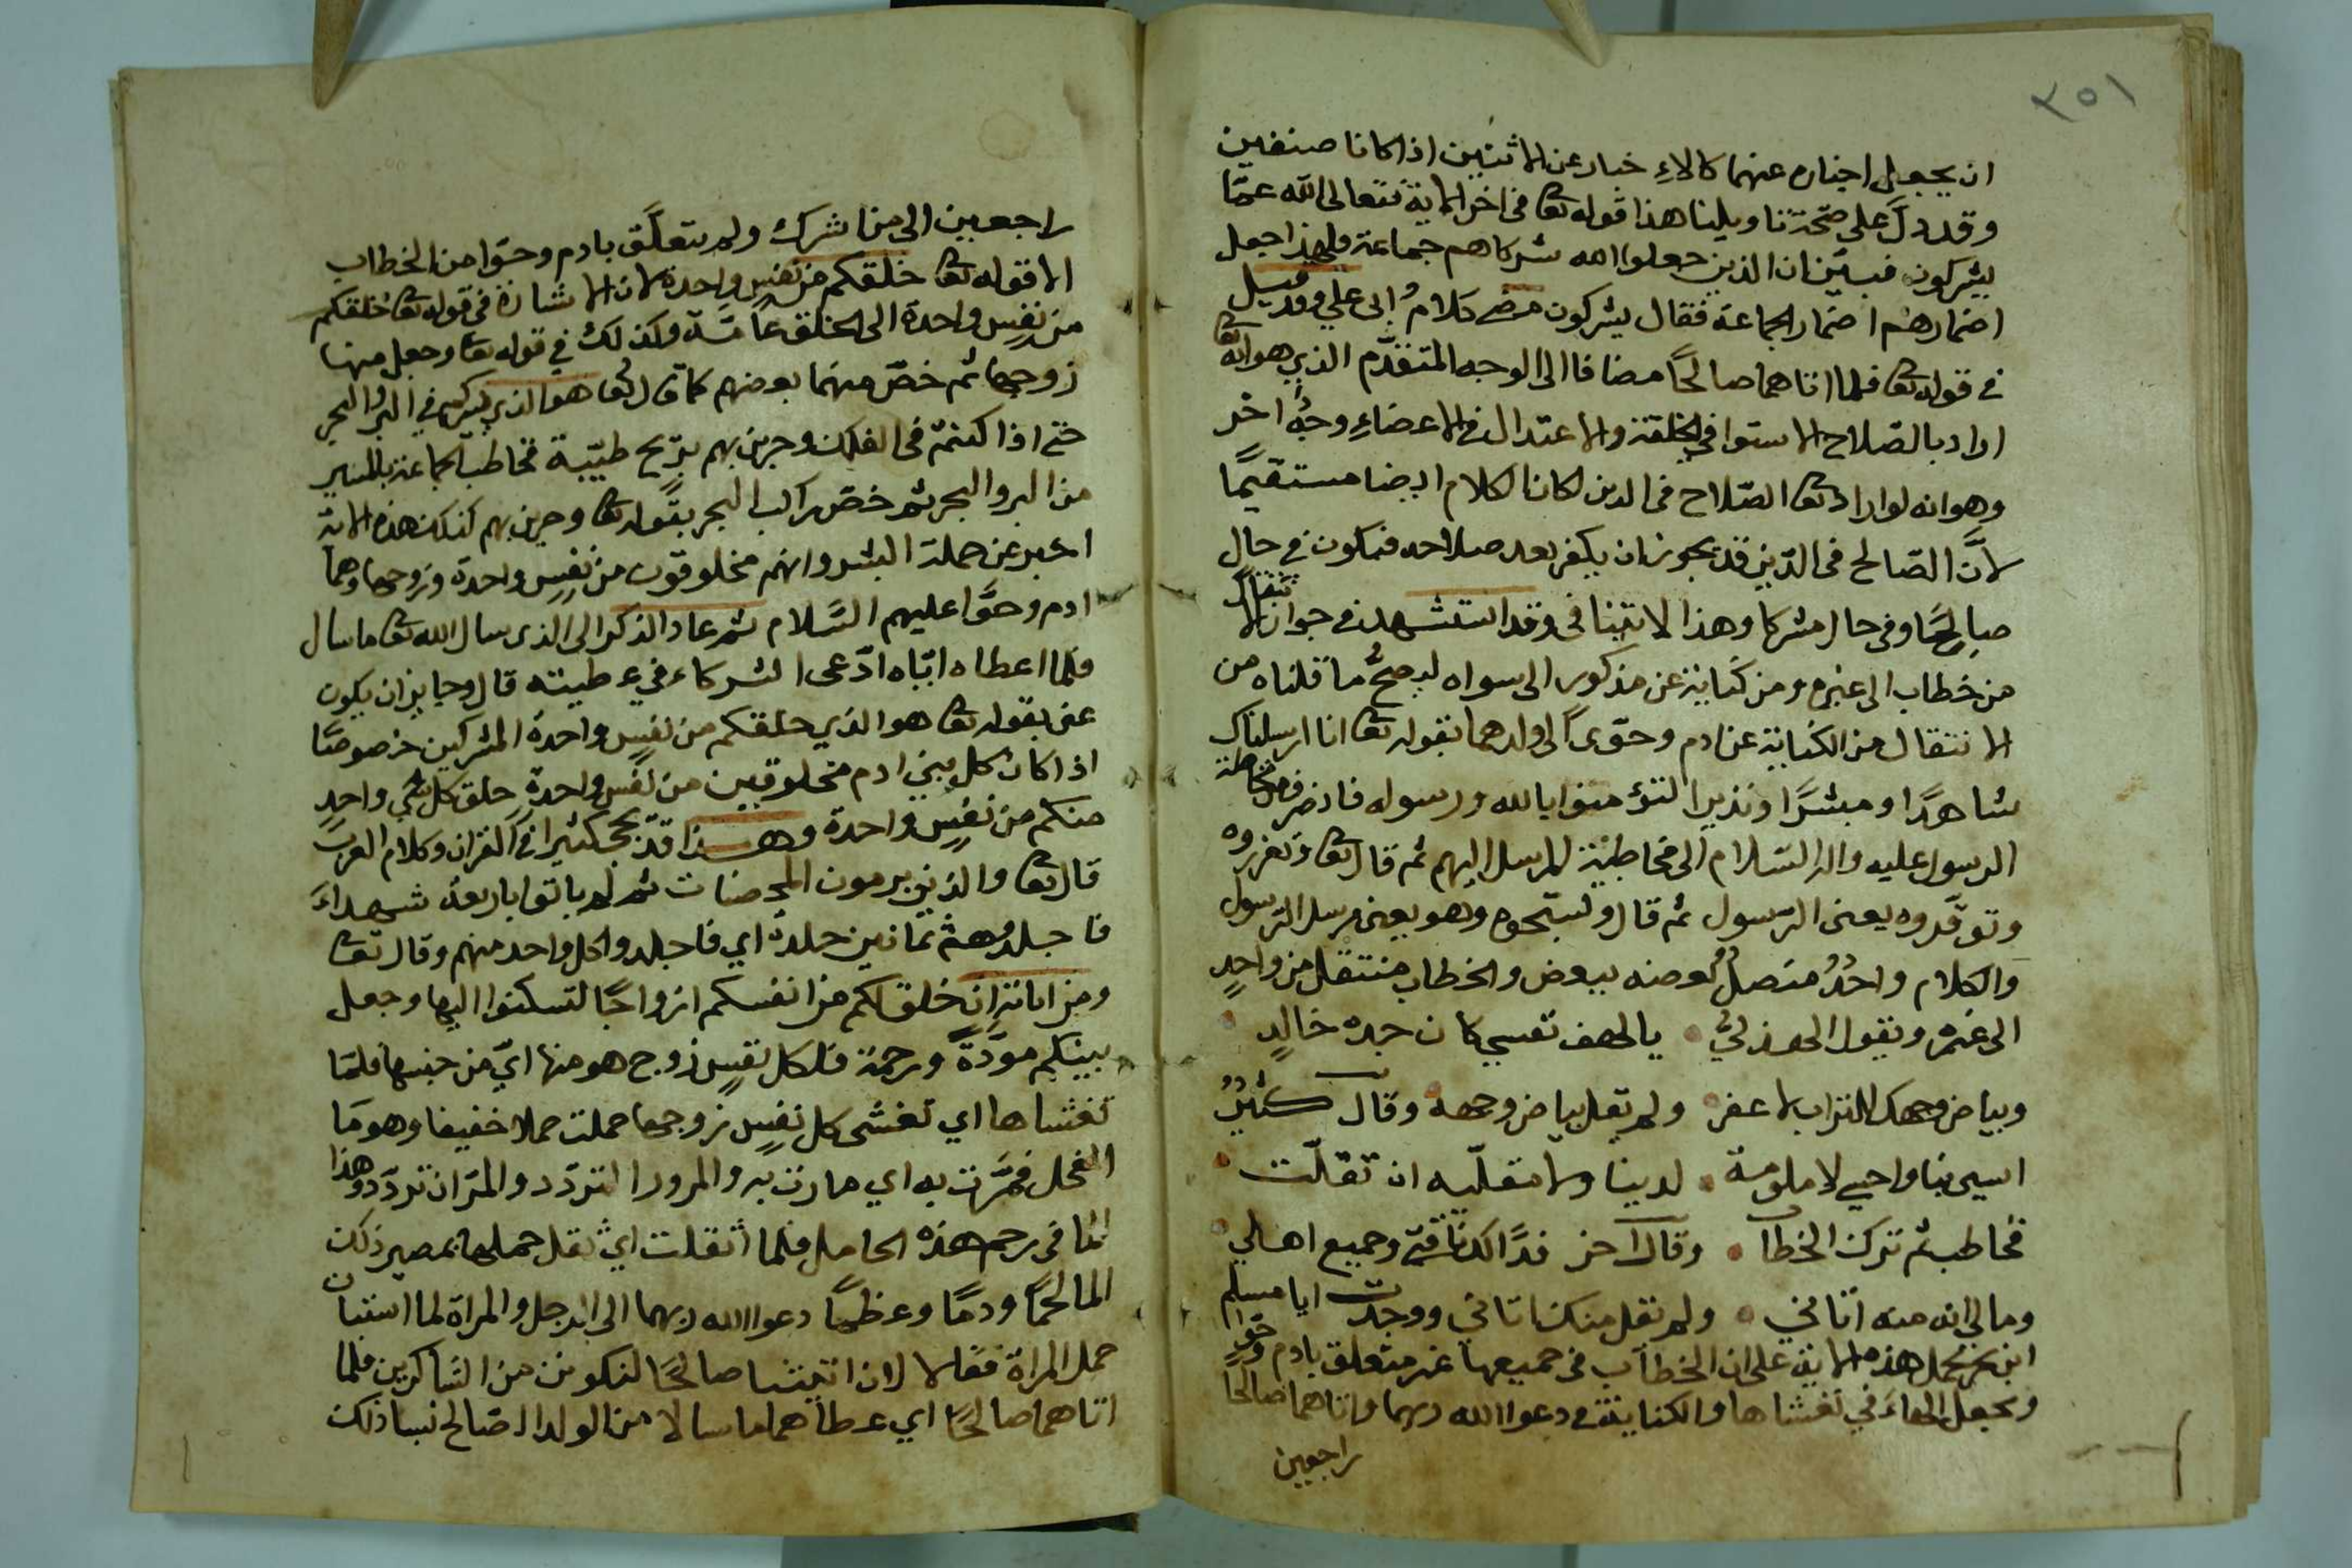 ٣٥١
ان يجعل اخباره عنهما كالاءِ خبار عن الاثنين اذا كانا صنفين
وقد دلّ على صحّة تاويلنا هذا قوله تعا في اخر الاية فتعالى الله عمّا
يشركون فبيّن ان الذين جعلوا لله شركا هم جماعة فلهذا جعل
اضمارهم اضمار الجماعة فقال يشركون مضى كلام ابى علي وقد قيل
في قوله تعا فلما اتاهما صالحًا مضافا الى الوجه المتقدّم الذي هو انه تعا
اراد بالصّلاح الاستوا في الخلقة والاعتدال في الاعضاءِ وجهٌ اخر
وهو انه لو اراد تعا الصّلاح فى الدين لكان الكلام ايضا مستقيمًا
لانّ الصّالح فى الدّين قد يجوز ان يكفر بعد صلاحه فيكون في حالٍ
صالحًا وفى حال مشركا وهذا لا يتنافى وقد استشهد في جواز الانتقال
من خطاب الى غيره ومن كناية عن مذكور الى سواه ليصحّ ما قلناه من
الانتقال من الكناية عن ادم وحوّى الى ولدهما بقوله تعا انا ارسلناك
شاهدًا ومبشرًا ونذيرا لتؤمنوا بالله ورسوله فانصرف من مخاطبة
الرسول عليه واله السّلام الى مخاطبة المرسل اليهم ثم قال تعا وتعزروه
وتوقّروه يعنى الرّسول ثم قال وتسبّحوه وهو يعنى مرسل الرّسول
والكلام واحدٌ متصلٌ بعضه ببعض والخطاب منتقل من واحدٍ
الى غيره ويقول الهذليّ يا لهف نفسي كان جده خالدٍ
وبياض وجهك للتراب الاعفر ولم يقل بياض وجهه وقال كثيّرٌ
اسيى بنا واحسى لا ملومة لدينا ولا مقليّه ان تقلّت
فخاطب ثم ترك الخطاب وقال اخر فدًا لك ناقتى وجميع اهلي
وما لي انه منه اتاني ولم يقل منك اتاني ووجدت ابا مسلم
ابن بحر يحمل هذه الاية على ان الخطاب فى جميعها غير متعلق بادم وحوّا
ويجعل الهاءَ في تغشاها والكناية في دعوا الله ربهما واتاهما صالحا
راجعين
راجعين الى من اشرك ولم يتعلّق بادم وحوّا من الخطاب
الا قوله تعا خلقكم من نفسٍ واحدة لان الاشارة فى قوله تعا خلقكم
من نفسٍ واحدة الى الخلق عامّة وكذلك في قوله تعا وجعل منها
زوجها ثم خصّ منهما بعضهم كما قال تعا هو الذي يسيركم في البر والبحر
حتى اذا كنتم فى الفلك وجرين بهم بريحٍ طيّبة فخاطب الجماعة بالتسير
من البر والبحر ثم خصّ راكب البحر بقوله تعا وجرين بهم كذلك هذه الاية
اخبر عن جملة البشر وانهم مخلوقون من نفسٍ واحدة وزوجها وهما
ادم وحوّا عليهم السّلام ثم عاد الذكر الى الذى سال الله تعا ما سال
فلما اعطاه ايّاه ادّعى الشركاء في عطيته قال وجايز ان يكون
عنى بقوله تعا هو الذي خلقكم من نفسٍ واحدة المشركين خصوصًا
اذا كان كل بني ادم مخلوقين من نفس واحدةٍ خلق كل شي واحدٍ
منكم من نفسٍ واحدة وهذا قد يجى كثيرا في القران وكلام العرب
قال تعا والذين يرمون المحصنات ثم لم ياتوا باربعة شهداءَ
فاجلدوهم ثمانين جلدةً اي فاجلدوا كل واحد منهم وقال تعا
ومن اياته ان خلق لكم من انفسكم ازواجًا لتسكنوا اليها وجعل
بينكم مودّةً ورحمة فلكل نفسٍ زوج هو منها اي من جنسها فلمّا
تغشاها اي تغشى كل نفسٍ زوجها حملت حملا خفيفا وهو مَا
الفحل فمرّت به اي مارت به والمرور التردّد والمرّان تردّد وهذا
الما في رحم هذه الحامل فلما أثقلت اي ثقل حملها بمصير ذلك
الما لحمًا ودمًا وعظمًا دعوا الله ربهما الى الرجل والمراة لما استبان
حمل المراة فقالا لان اتيتنا صالحًا لنكونن من الشاكرين فلما
اتاهما صالحًا اي عطاهما ما سالا من الولد الصّالح نسبا ذلك